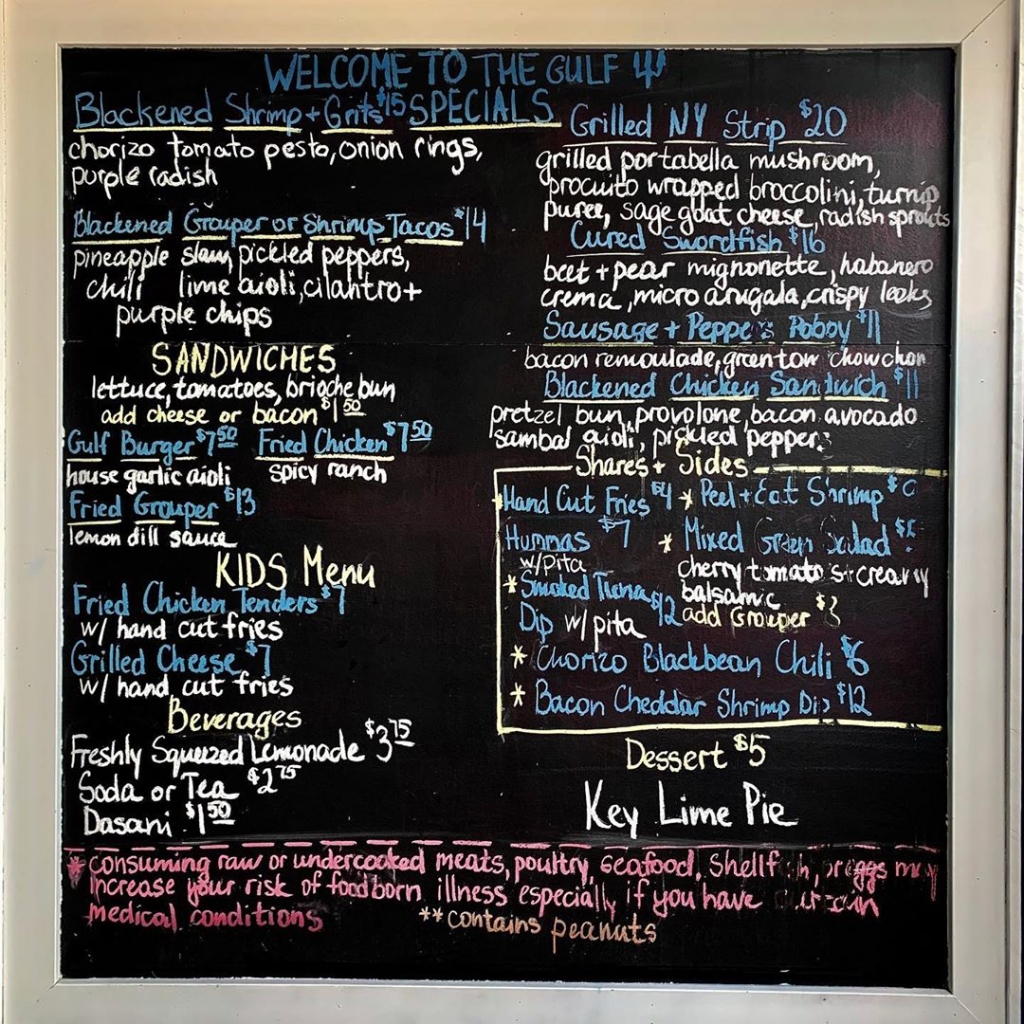 WELCOME TO THE GULF
SPECIALS
Blackened Shrimp + Grits $15
chorizo tomato pesto, onion rings,
purple radish
Blackened Grouper or Shrimp Tacos $14
pineapple slaw, pickled peppers,
chili lime aioli, cilantro +
purple chips
SANDWICHES
lettuce, tomatoes, brioche bun
add cheese or bacon $1.50
Gulf Burger $7.50 Fried Chicken $7.50
house garlic aioli spicy ranch
Fried Grouper $13
lemon dill sauce
KIDS Menu
Fried Chicken Tenders $7
w/ hand cut fries
Grilled Cheese $7
w/ hand cut fries
Beverages
Freshly Squeezed Lemonade $3.75
Soda or Tea $2.75
Dasani $1.50
Grilled NY Strip $20
grilled portabella mushroom,
procuito wrapped broccolini, turnip
puree, sage goat cheese, radish sprouts
Cured Swordfish $16
beet + pear mignonette, habanero
crema, micro arugala, crispy leeks
Sausage + Peppers Poboy $11
bacon remoulade, green tom chow chow
Blackened Chicken Sandwich $11
pretzel bun, provolone, bacon avocado
sambal aioli, pickled peppers
Shares + Sides
*Hand Cut Fries $4 * Peel + Eat Shrimp
Hummas $7 * Mixed Green Salad
w/pita cherry tomatos + creamy
*Smoked Tuna $12 balsamic
Dip w/ pita add Grouper
* Chorizo Blackbean Chili $6
* Bacon Cheddar Shrimp Dip $12
Dessert $5
Key Lime Pie
* consuming raw or undercooked meats, poultry, seafood, Shellfish, or eggs may
increase your risk of foodborn illness especially if you have certain
medical conditions **contains peanuts